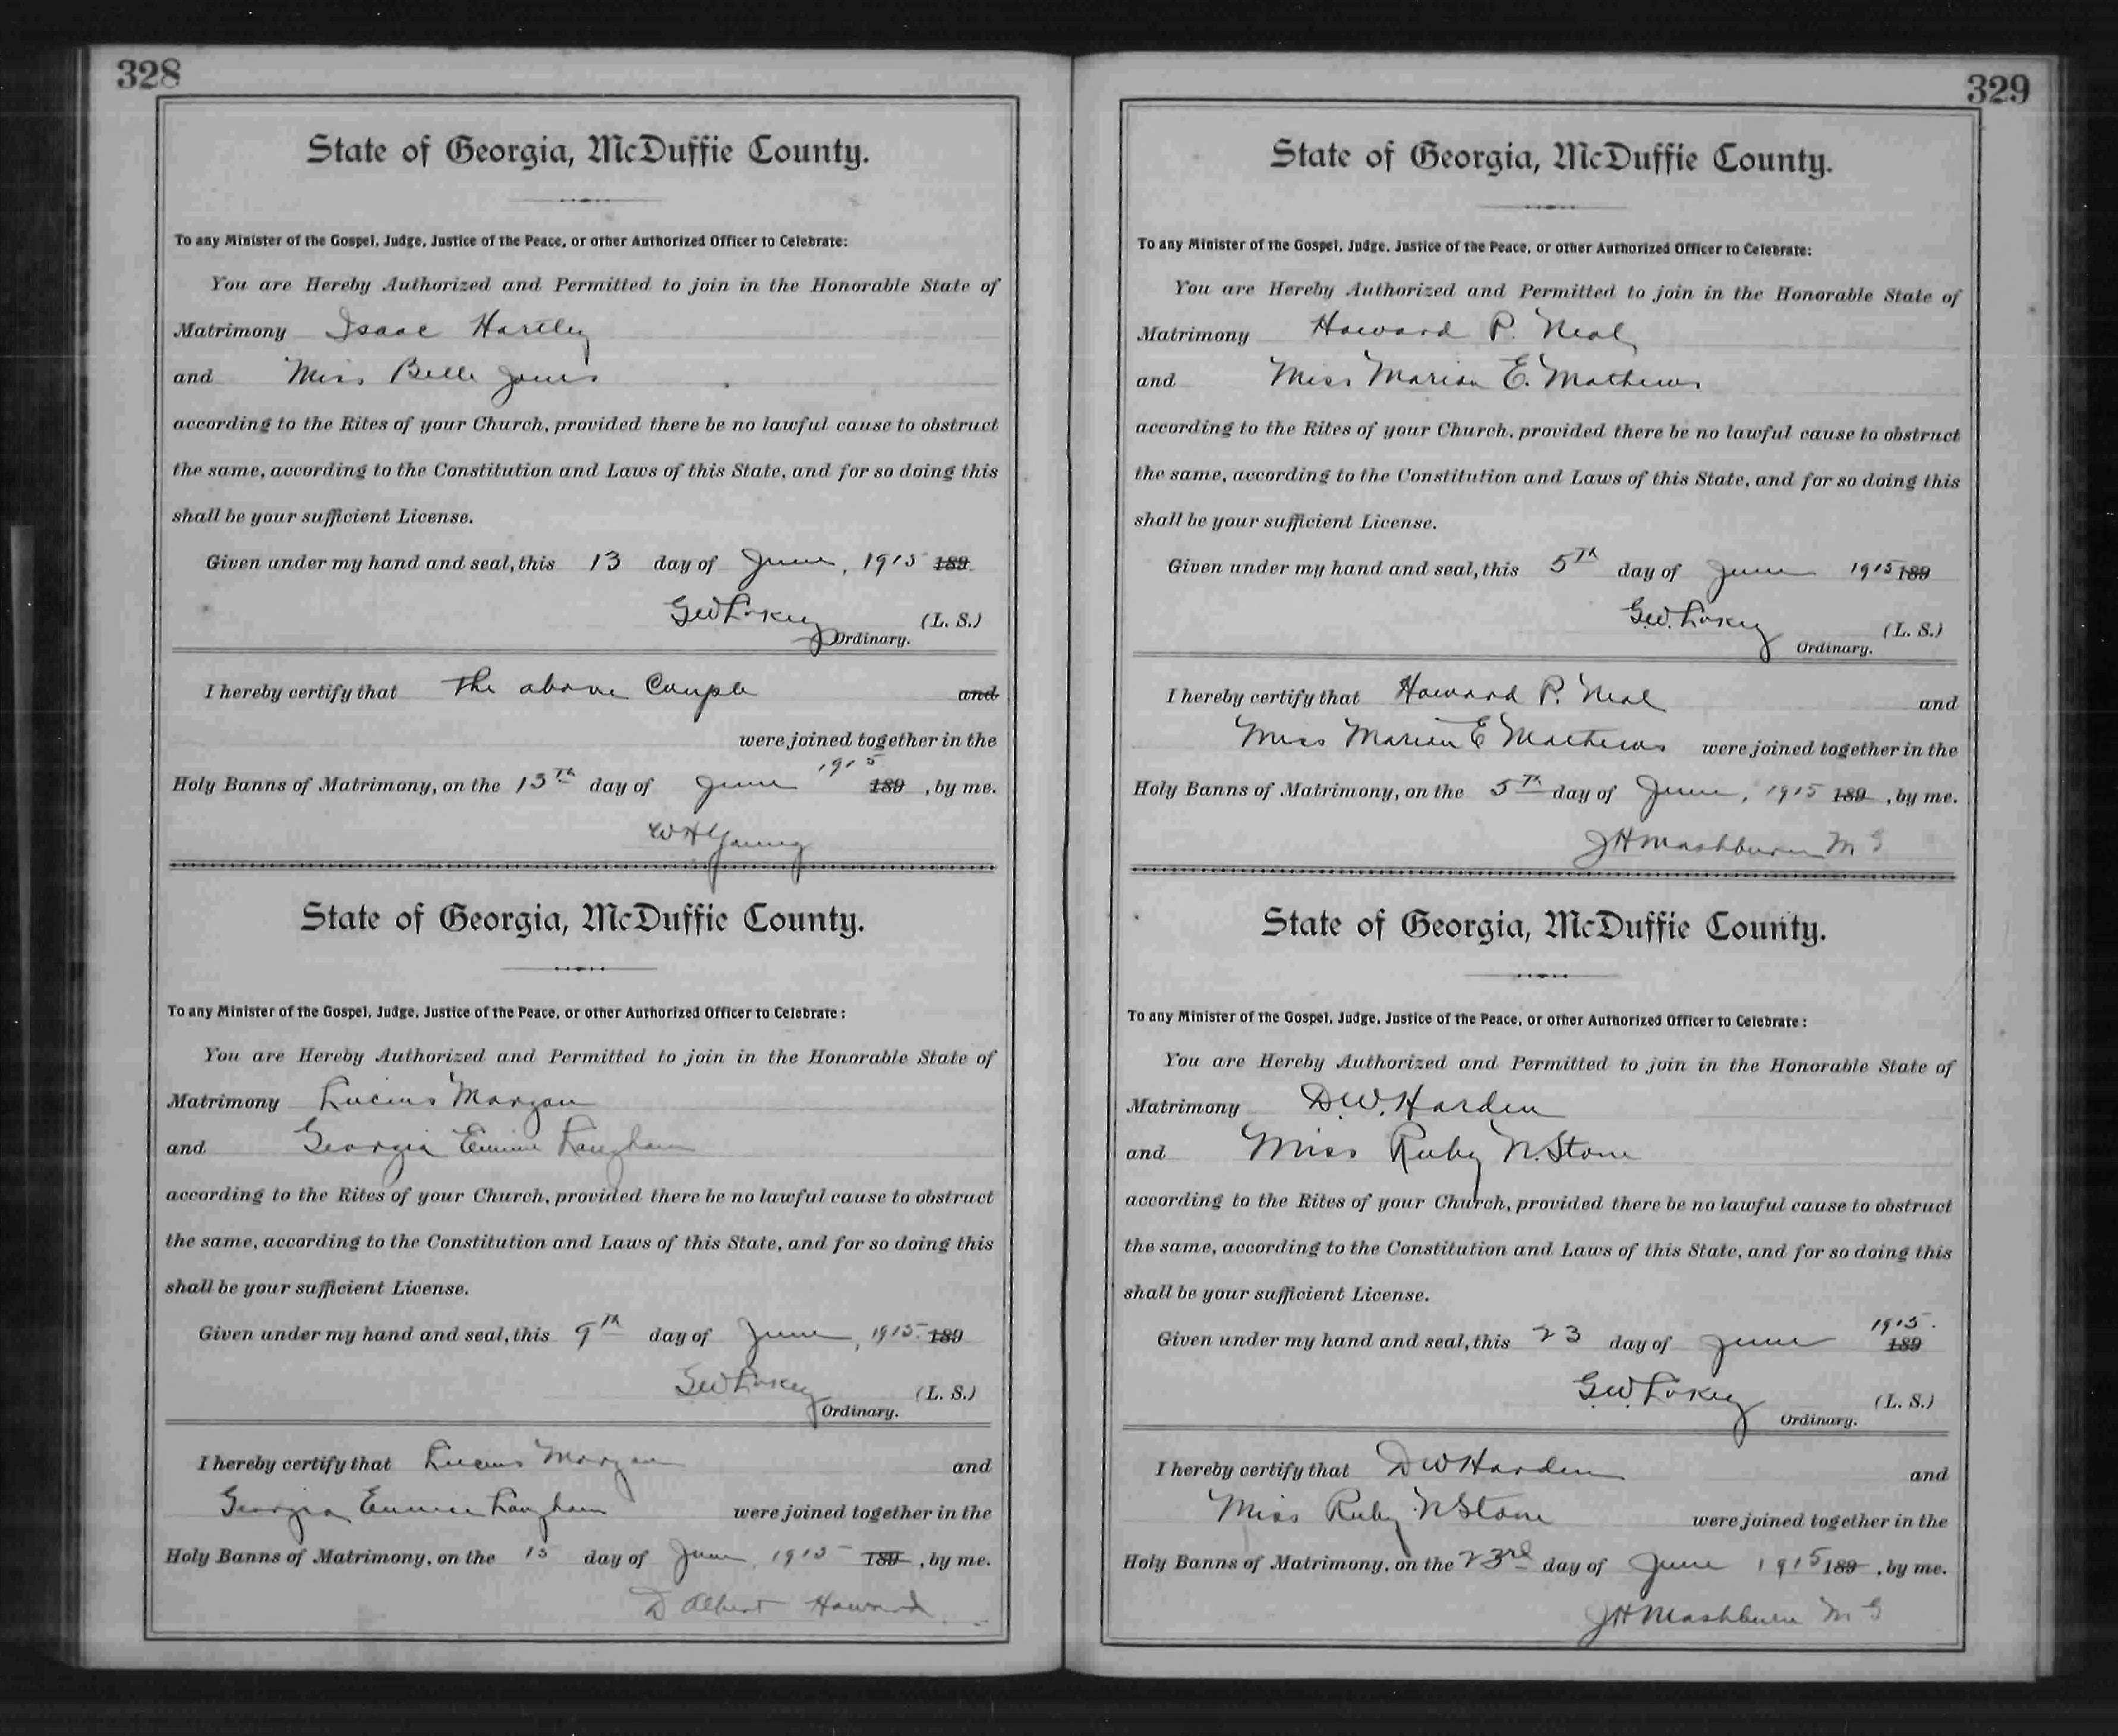 328
State of Georgia, McDuffie County.
To any Minister of the Gospel, Judge, Justice of the Peace, or other Authorized Officer to Celebrate:
You are Hereby Authorized and Permitted to join in the Honorable State of
Matrimony Isaac Hartley
and Miss Belle Jones
according to the Rites of your Church, provided there be no lawful cause to obstruct
the same, according to the Constitution and Laws of this State, and for so doing this
shall be your sufficient License.
Given under my hand and seal, this 13 day of June, 1915 189
Geo W Lokey (L. S.)
Ordinary.
I hereby certify that The above Couple and
were joined together in the
Holy Banns of Matrimony, on the 13th day of June 1915 189 , by me.
W H Young
State of Georgia, McDuffie County.
To any Minister of the Gospel, Judge, Justice of the Peace, or other Authorized Officer to Celebrate:
You are Hereby Authorized and Permitted to join in the Honorable State of
Matrimony Lucius Morgan
and Georgia Eunice Langham
according to the Rites of your Church, provided there be no lawful cause to obstruct
the same, according to the Constitution and Laws of this State, and for so doing this
shall be your sufficient License.
Given under my hand and seal, this 9th day of June, 1915 189
Geo W Lokey (L. S.)
Ordinary.
I hereby certify that Lucius Morgan and
Georgia Eunice Langham were joined together in the
Holy Banns of Matrimony, on the 13 day of June, 1915 189 , by me.
D Albert Howard
329
State of Georgia, McDuffie County.
To any Minister of the Gospel, Judge, Justice of the Peace, or other Authorized Officer to Celebrate:
You are Hereby Authorized and Permitted to join in the Honorable State of
Matrimony Howard P. Neal
and Miss Marion E. Mathews
according to the Rites of your Church, provided there be no lawful cause to obstruct
the same, according to the Constitution and Laws of this State, and for so doing this
shall be your sufficient License.
Given under my hand and seal, this 5th day of June 1915 189
Geo. W. Lokey (L. S.)
Ordinary.
I hereby certify that Howard P. Neal and
Miss Marion E Mathews were joined together in the
Holy Banns of Matrimony, on the 5th day of June, 1915 189 , by me.
J H Mashburn M G
State of Georgia, McDuffie County.
To any Minister of the Gospel, Judge, Justice of the Peace, or other Authorized Officer to Celebrate:
You are Hereby Authorized and Permitted to join in the Honorable State of
Matrimony D.W. Harden
and Miss Ruby N. Stone
according to the Rites of your Church, provided there be no lawful cause to obstruct
the same, according to the Constitution and Laws of this State, and for so doing this
shall be your sufficient License.
Given under my hand and seal, this 23 day of June 1915. 189
G.W. Lokey (L. S.)
Ordinary.
I hereby certify that D W Harden and
Miss Ruby N Stone were joined together in the
Holy Banns of Matrimony, on the 23rd day of June 1915 189 , by me.
J H Mashburn M G